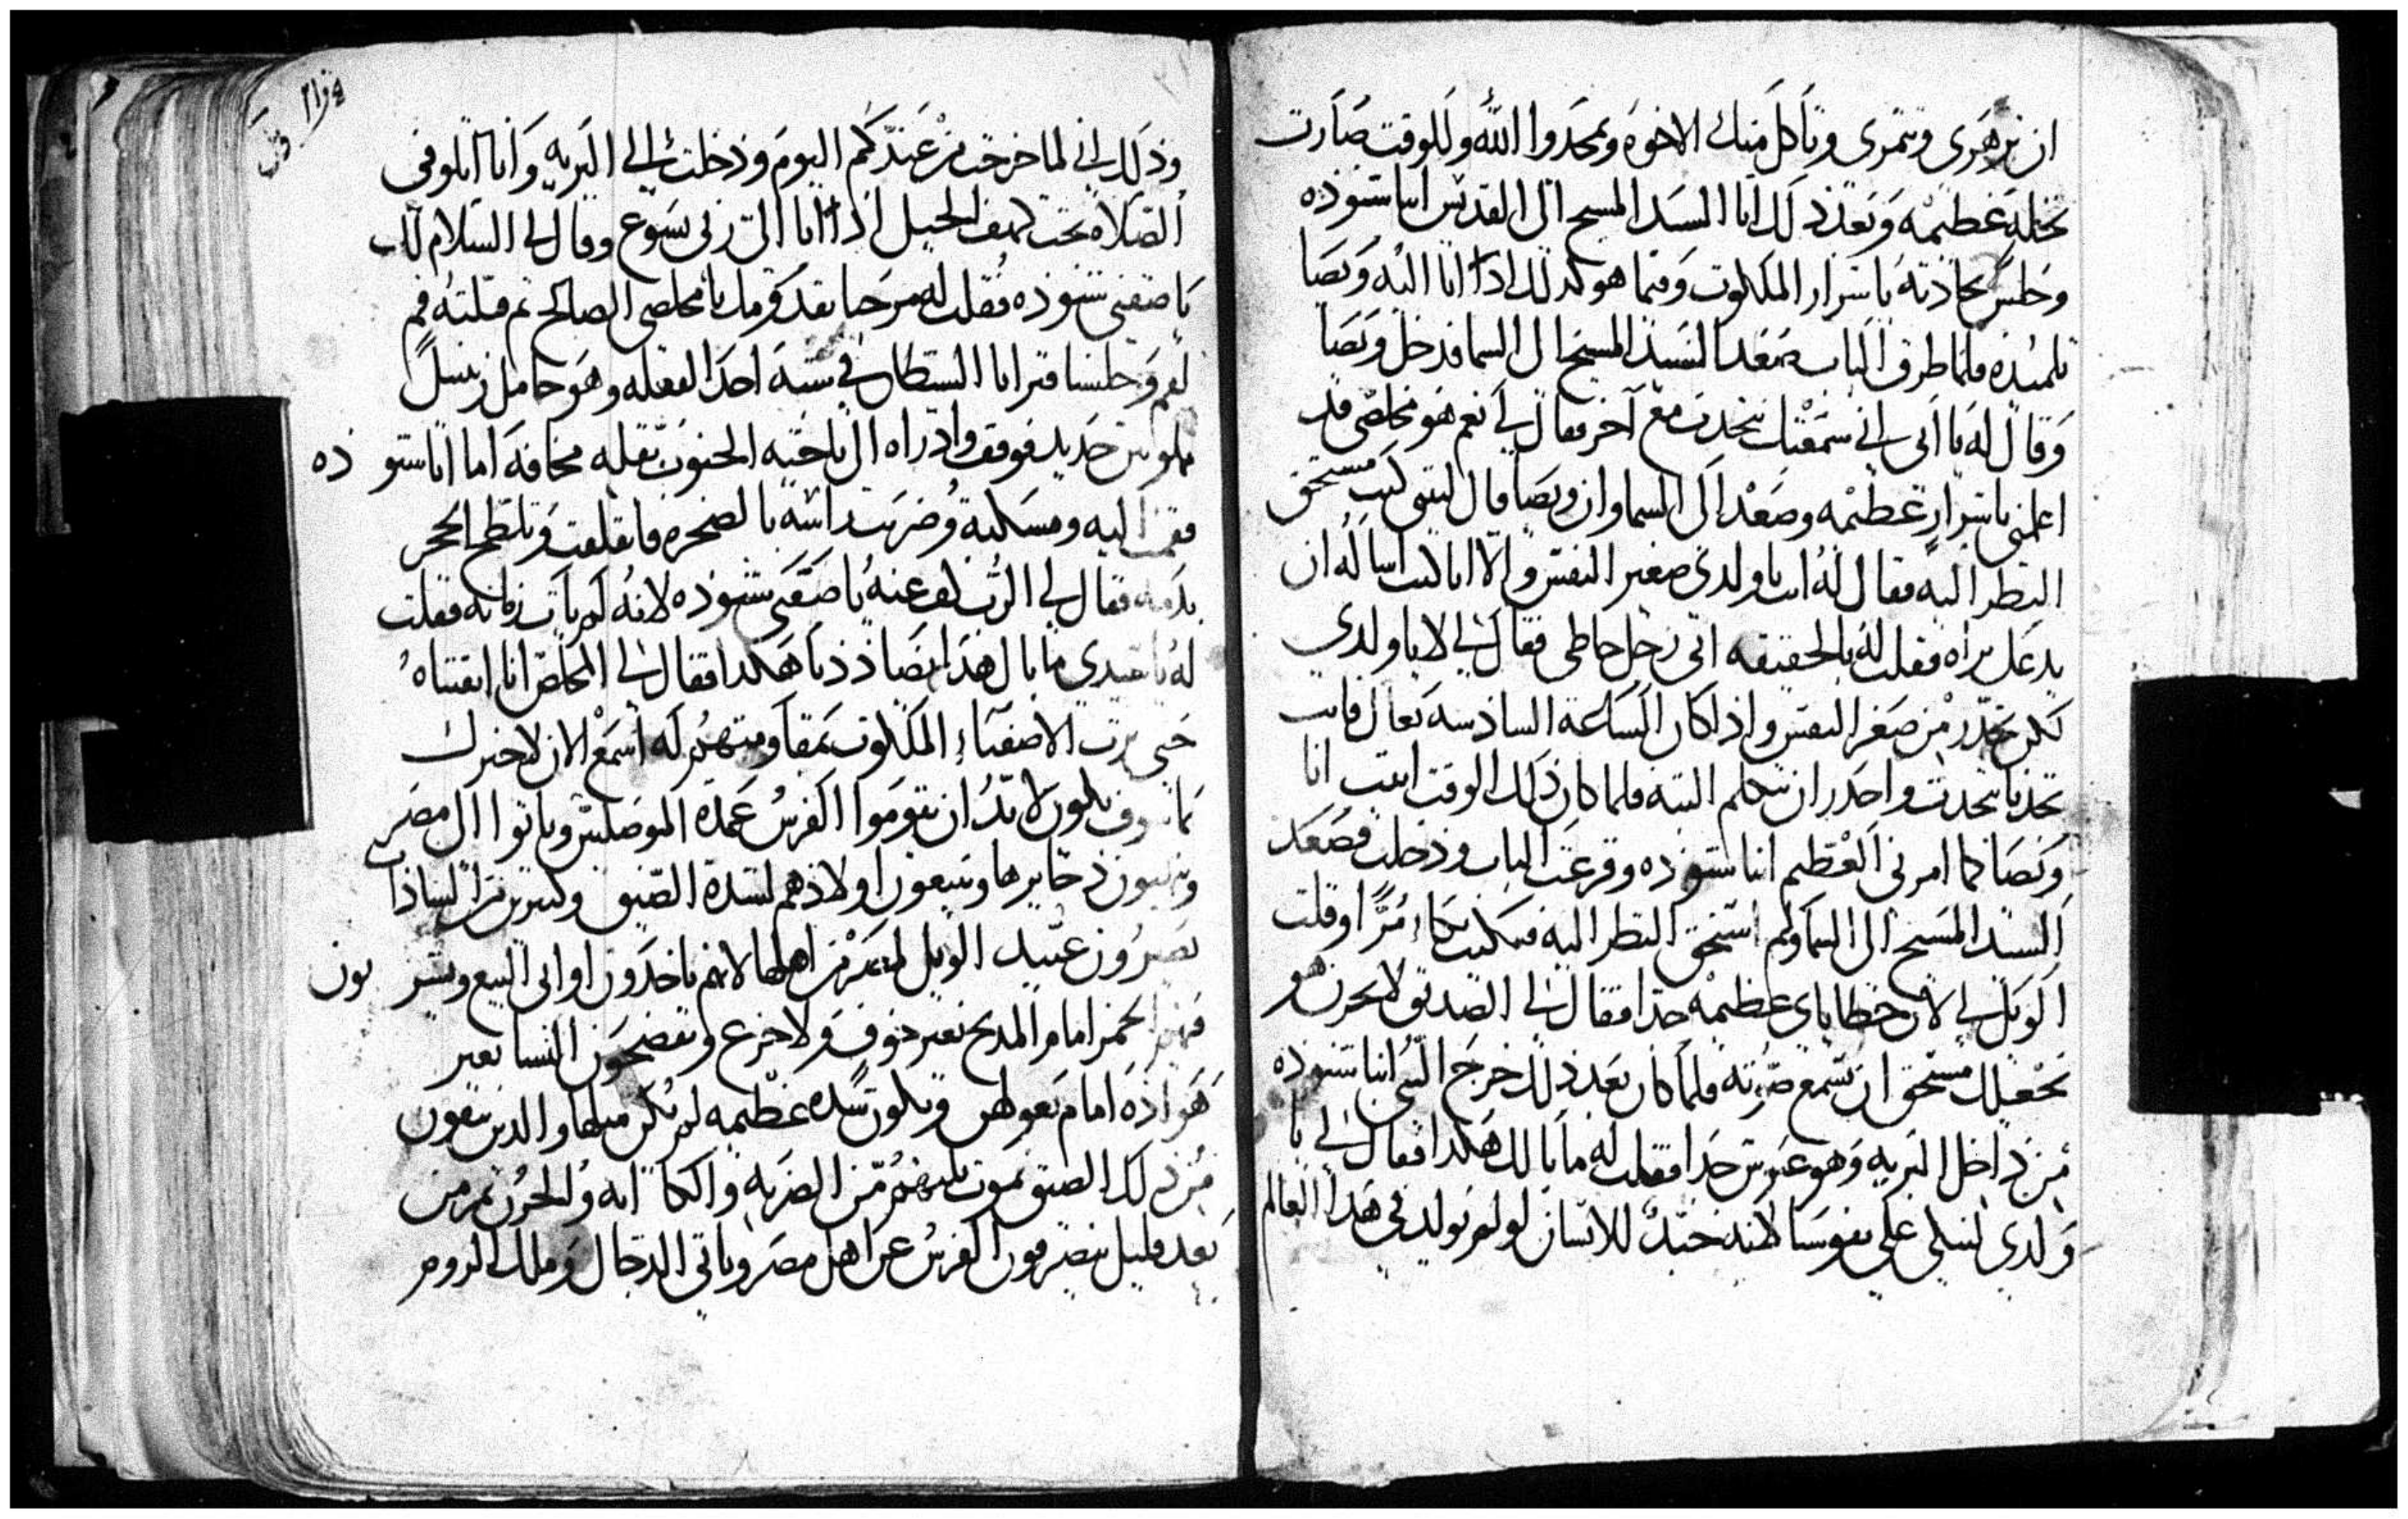 ان تزهري وتتمري وتاكل منك الاخوه ويمجدوا الله وللوقت صارت
نخله عظيمه وبعد ذلك اتا السيد المسيح الى القديس انبا شنوده
وجلس يحادثه باسرار الملكوت وفيما هو كذلك اذا انا اليه ويصا
تلميذه فلما طرق الباب صعد السيد المسيح الى السما فدخل ويصا
وقال له يا ابي اني سمعتك تتحدث مع آخر فقال لي نعم هو مخلصي قد
اعلمني باسرار عظيمه وصعد الى السما وان ويصا قال ليتني كنت مستحق
النظر اليه فقال له انت يا ولدي صغير النفس والا انا كنت اساله ان
يدعك تراه فقلت له بالحقيقه اني رجل خاطي فقال لي لا يا ولدي
لكن تحذر من صغر النفس واذا كان الساعة السادسه تعال فانت
تجدنا نتحدث واحذر ان تتكلم البته فلما كان ذلك الوقت اتيت انا
ويصا كما امرني العظيم انبا شنوده وقرعت الباب ودخلت فصعد
السيد المسيح الى السما ولم استحق النظر اليه فبكيت بكاء مرا وقلت
الويل لي لان خطاياي عظيمه جدا فقال لي الصديق لا تحزن هو
يجعلك مستحق ان تسمع صوته فلما كان بعد ذلك خرج النبي انبا شنوده
من داخل البريه وهو عبوس جدا فقلت له ما بالك هكذا فقال لي يا
ولدي لنبكي على نفوسنا لانه خير للانسان لو لم يولد في هذا العالم
وذلك اني لما خرجت من عندكم اليوم ودخلت الى البريه وانا اتلو في
الصلاة تحت كهف الجبل اذا انا اتى ربي يسوع وقال لي السلام لك
يا صفيي شنوده فقلت له مرحبا بقدومك يا مخلصي الصالح ثم قبلته فم
لفم وجلسنا فترايا الشيطان في شبه احد الفعله وهو حامل زنبيل
مملو تبن حديد فوقف واذ راه ال ناحيته الجنون بقله مخافه اما انا شنوده
فقمت اليه ومسكته وضربت راسه بالصخره فانفلقت وتلطخ الحجر
بدمه فقال لي الرب كف عنه يا صفيي شنوده لانه لم يات زمانه فقلت
له يا سيدي ما بال هذا المضاد ديا هكذا فقال لي المخلص انا ابقيناه
حتى يرث الاصفياء الملكوت بمقاومتهم له اسمع الان لاخبرك
بما سوف يكون لا بد ان يقوموا الفرس عمدة الموصلين وياتوا الى مصر
وينهبون ذخايرها ويبيعون اولادهم لشدة الضيق وكثيرين من السادا
يصيرون عبيد الويل لمصر من اهلها لانهم ياخذون اواني البيع ويشربون
فيهم الخمر امام المذبح بغير خوف ولا جزع ويفضحون النسا بغير
هواده امام بعولهن ويكون شده عظيمه لم يكن مثلها والذين يبقون
من ذلك الضيق يموت ثلثهم من الضربه والكابه والحزن ثم من
بعد قليل ينصرفون الفرس عن اهل مصر وياتي الدجال وملك الروم